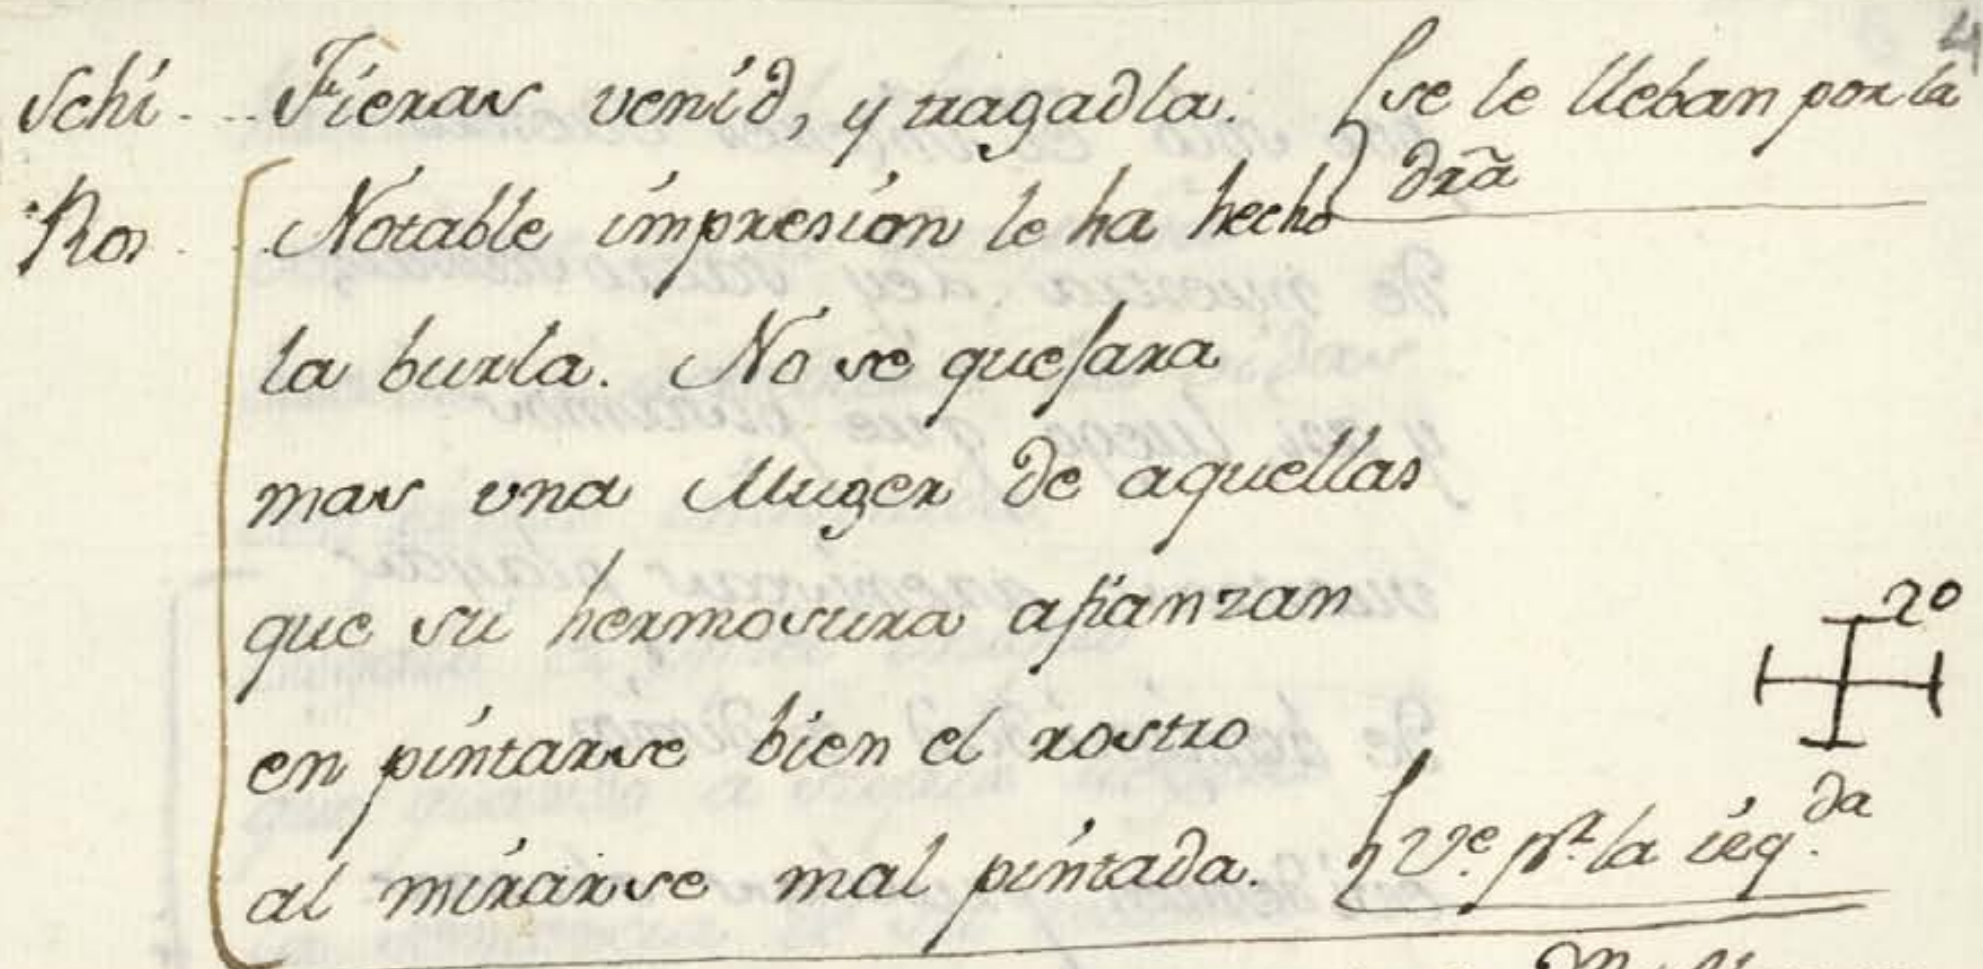 4
Schi... Fieras venid, y tragadla. se le lleban por la
dra
Ros... Notable impresion le ha hecho
la burla. No se quejara
mas una Muger de aquellas
que su hermosura afianzan
2º
en pintarse bien el rostro
al mirarse mal pintada. Ve. pr. la izq.da